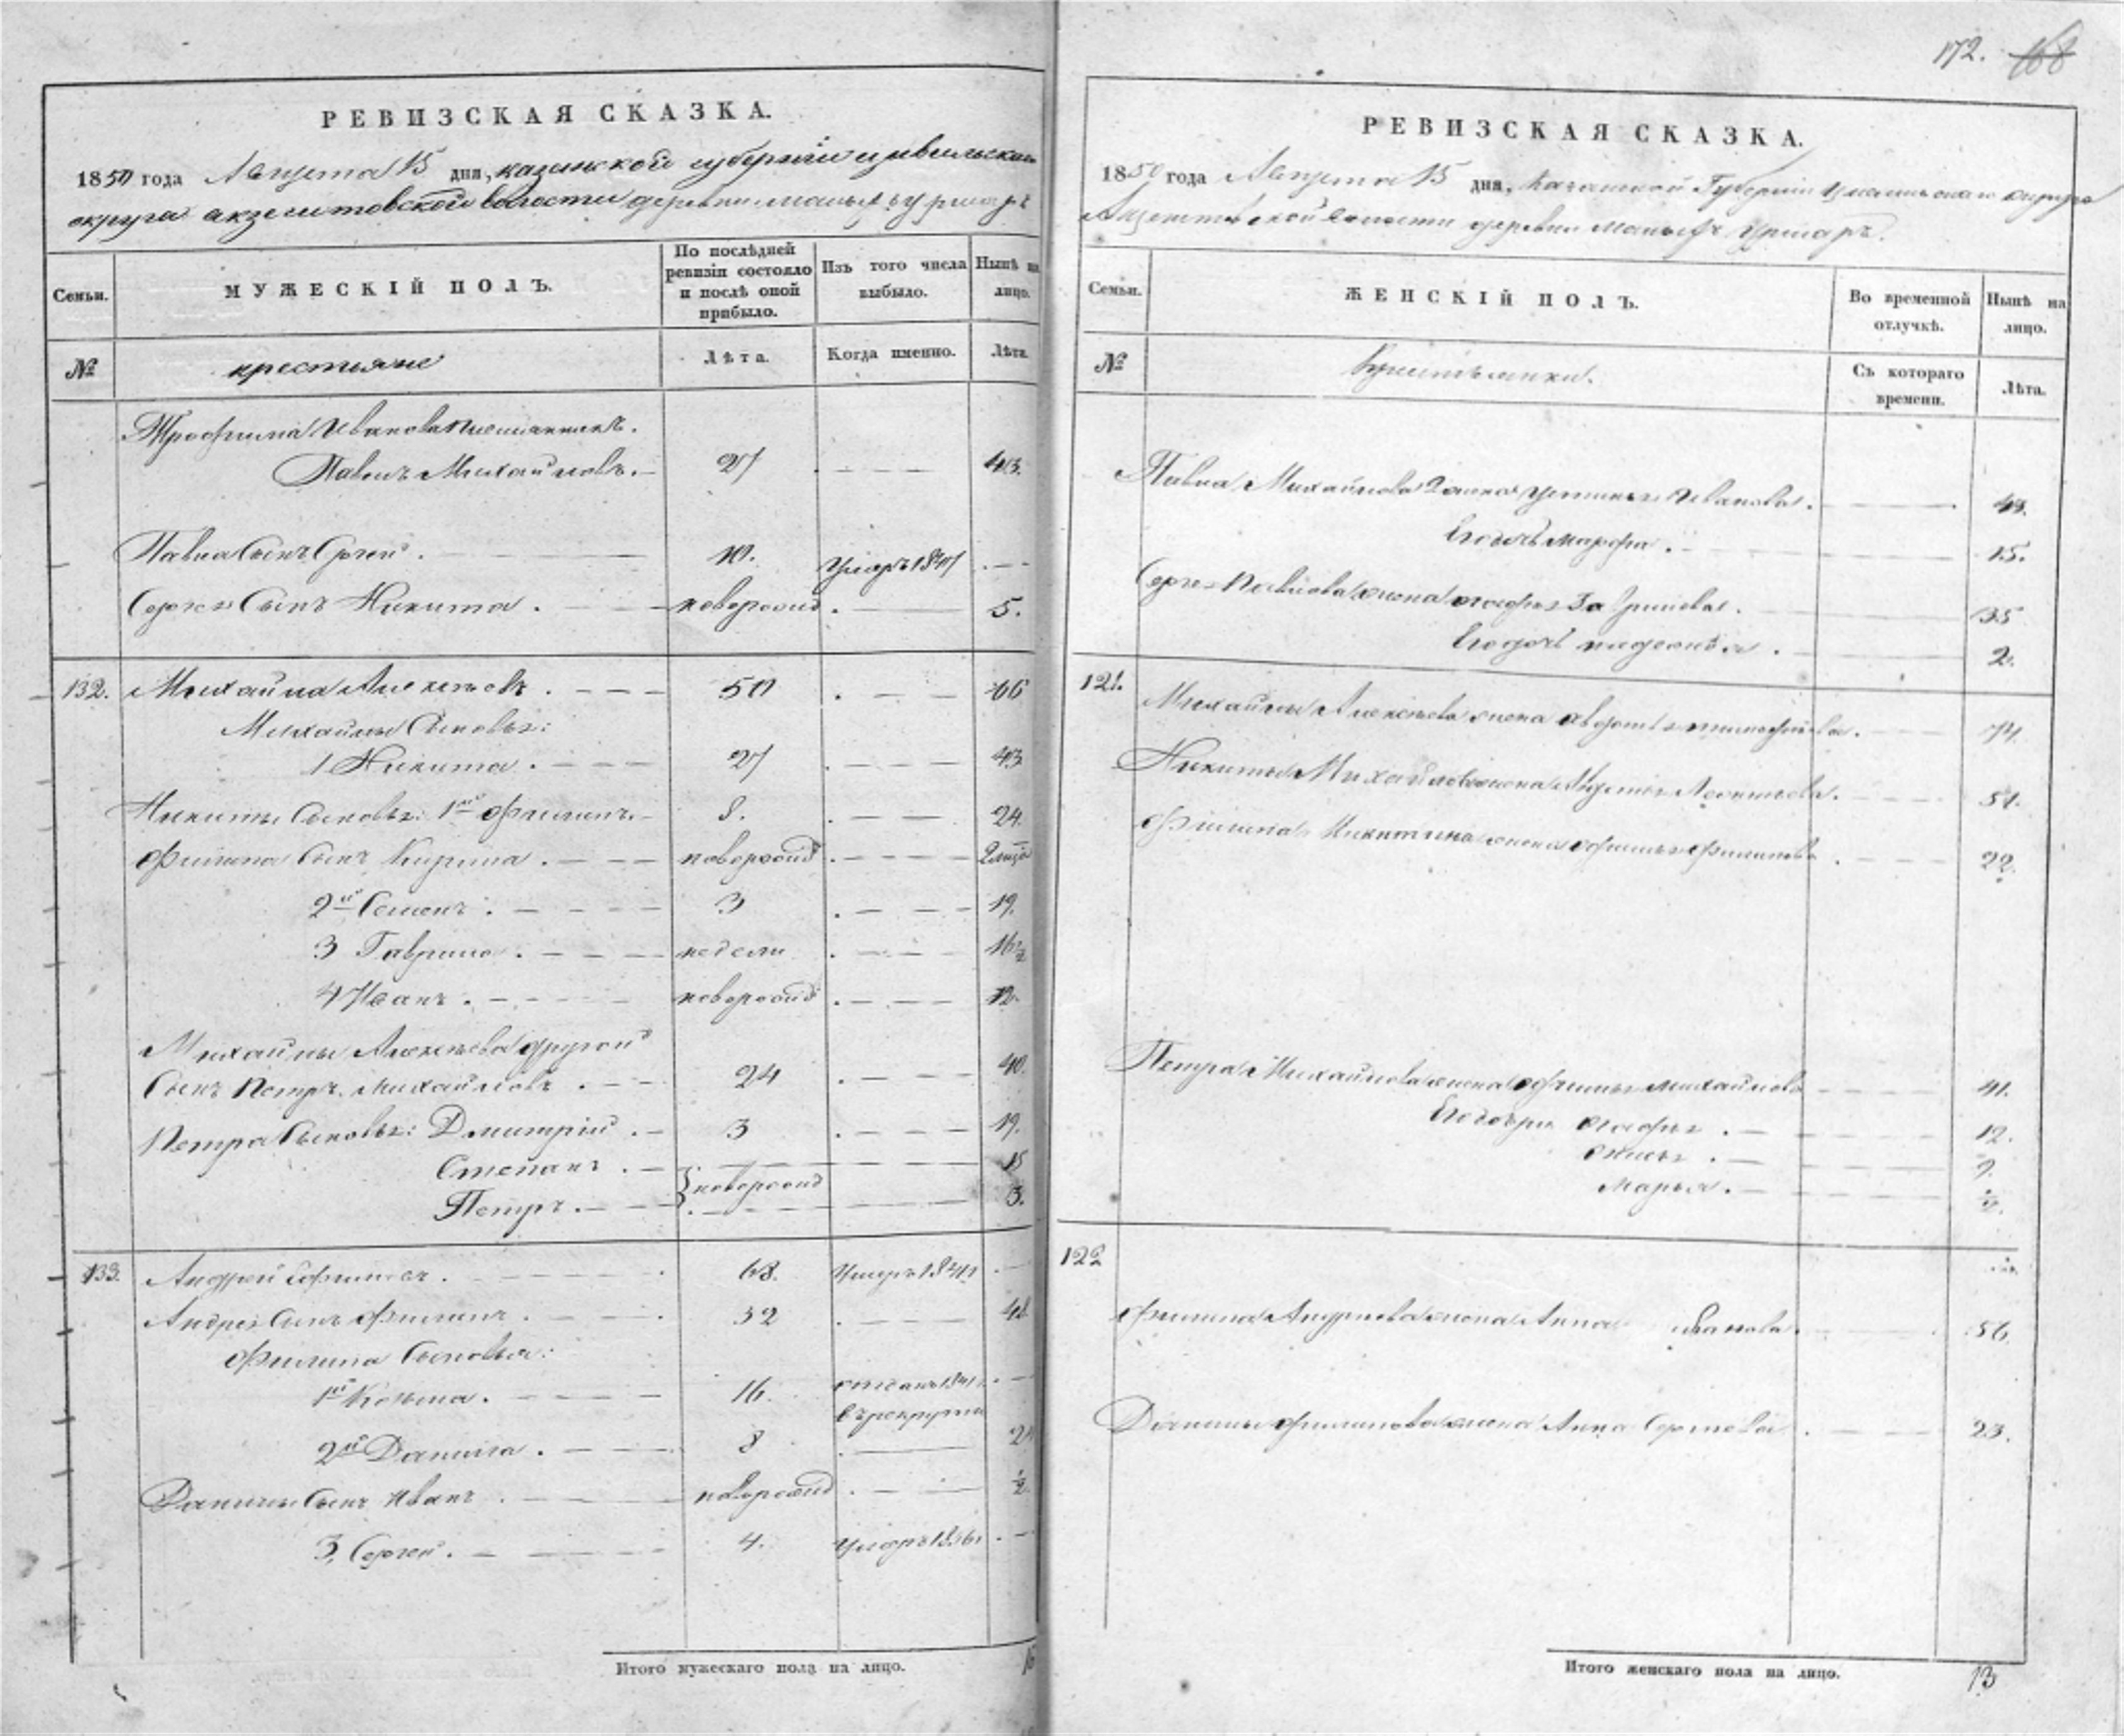 РЕВИЗСКАЯ СКАЗКА.
1850 года Августа 15 дня, казанской губернии цивильскаго
округа акзегитовской волости деревни малых уршаръ
Семьи.
МУЖЕСКІЙ ПОЛЪ.
По послѣдней ревизіи состояло и послѣ оной прибыло.
Изъ того числа выбыло.
Нынѣ на лицо.
№
крестьяне
Лѣта.
Когда именно.
Лѣта.
Трофима Иванова племянникъ.
Павелъ Михайловъ. 27 43.
Павла Сынъ Сергей. 10. Умеръ 1841
Сергея Сынъ Никита. новорожд. 5.
132. Михайла Алексѣевъ. 50 66
Михайлы Сыновья:
1 Никита. 27 43
Никиты Сыновья: 1й Филипъ. 8. 24.
Филипа Сынъ Кирила. новорожд
2й Семенъ. 3 19.
3 Гаврило. недели 16½
4 Иванъ. новорожд 12.
Михайлы Алексѣева другой
Сынъ Петръ Михайловъ. 24 40.
Петра Сыновья: Дмитрій. 3 19.
Степанъ. новорожд 15
Петръ. 3.
133. Андрей Ефимовъ. 68. Умеръ
Андрея Сынъ Филипъ. 32 48
Филипа Сыновья:
1й Козьма. 16.
въ рекруты
2й Данила. 8 24
Данилы Сынъ Иванъ. новорожд ½
3, Сергей. 4. Умеръ 1836.
Итого мужескаго пола на лицо. 16
172. 168
РЕВИЗСКАЯ СКАЗКА.
1850 года Августа 15 дня, Казанской Губерніи Цивильскаго округа
Акзегитовской волости деревни малыхъ Уршаръ.
Семьи.
ЖЕНСКІЙ ПОЛЪ.
Во временной отлучкѣ.
Нынѣ на лицо.
№
Крестьянки.
Съ котораго времени.
Лѣта.
Павла Михайлова 2 жена Устинья Иванова. 43.
Его дочь Марфа. 15.
Сергея Павлова жена 35
Его дочь 2.
121. Михайлы Алексѣева жена Авдотья Тимофѣева. 74.
Никиты Михайлова жена Леонтьева. 51.
Филипа Никитина жена Филипова 22.
Петра Михайлова жена Михайлова 41.
Его дочери 12.
9.
Марья. ½.
122
Филипа Андреева жена Анна 56.
Данилы Филипова жена Анна Сергеева. 23.
Итого женскаго пола на лицо. 13